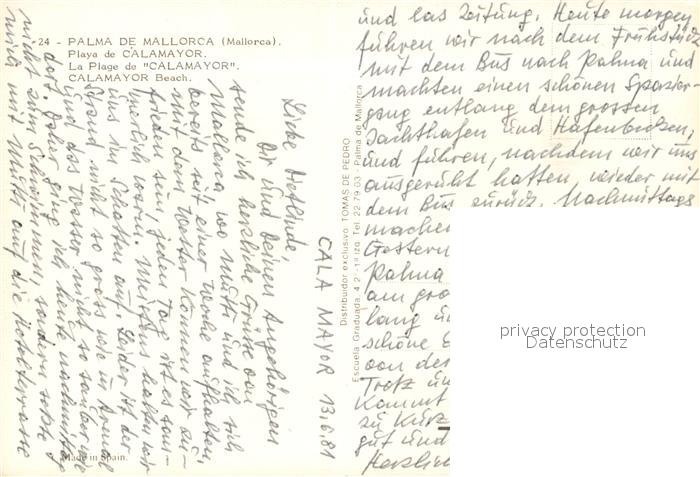 24 - PALMA DE MALLORCA (Mallorca).
Playa de CALAMAYOR.
La Plage de "CALAMAYOR".
CALAMAYOR Beach.
CALA MAYOR 13.6.81
Liebe Dietlinde,
Dir und Deinen Angehörigen
sende ich herzliche Grüsse von
Mallorca, wo Mutti und ich sich
bereits seit einer Woche aufhalten.
Mit dem Wetter können wir zu-
frieden sein, jeden Tag ist es son-
nig und warm. Mittags halten wir
uns im Schatten auf. Leider ist der
Strand nicht so gross wie in
und das Wasser nicht so sauber wie
dort. Daher ging ich heute nachmittag
nicht zum Schwimmen, sondern setzte
mich mit Mutti auf die Hotelterrasse
und las Zeitung. Heute morgen
führen wir nach dem Frühstück
mit dem Bus nach Palma und
machten einen schönen Spazier-
gang entlang dem grossen
Jachthafen und Hafenbecken,
und führen, nachdem wir uns
ausgeruht hatten, wieder mit
dem Bus zurück. Nachmittags
machen
Gestern
Palma
am gro
lang u
schöne
von der
Trotz un
kommt
zu kurz
gut und
Herzlich
Distribuidor exclusivo: TOMAS DE PEDRO
Escuela Graduada, 4 2°-1ª Izq. Tel. 22 79 03 - Palma de Mallorca
Made in Spain.
privacy protection
Datenschutz